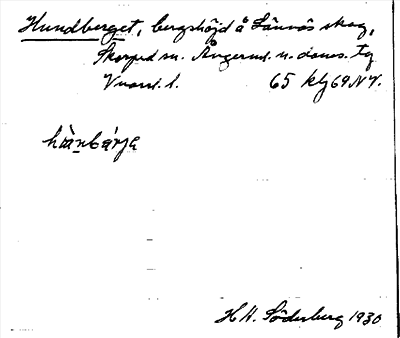 Hundberget, bergshöjd å Lännäs skog,
Skorped sn. Ångerml. n. doms. Tg
65 kbg 69 NV.
hùnbárjə
H H. Söderberg 1930